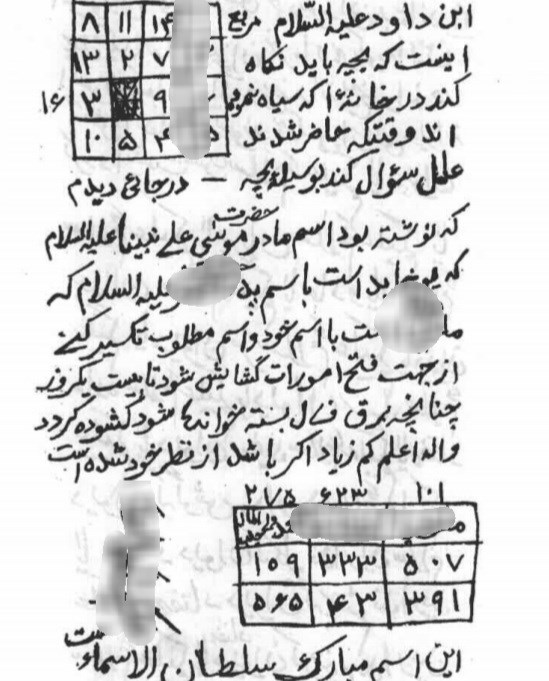 ابن داود علیه السّلام مربع
۸ ۱۱ ۱۴
اینست که بچه باید نگاه
۱۳ ۲ ۷
کند در خانهٔ که سیاه نموده
۳ ۹ ۱۶
اند وقتیکه حاضر شدند
۱۰ ۵ ۴ ۵
عامل سؤال کند بوسیله بچه — در جائی دیدم
که نوشته بود اسم مادر حضرت موسی علی نبینا علیه السلام
که است با اسم علیه السلام که
با اسم خود و اسم مطلوب تکسیر کنی
از جهت فتح امورات گشایش شود تا بیست یکروز
چنانچه برق فال بسته خواند شود گشوده گردد
واله اعلم کم زیاد اگر باشد از نظر خود شده است
۲۷۵ ۶۲۳ ۱۰۱
۱۵۹ ۳۳۳ ۵۰۷
۵۶۵ ۴۳ ۳۹۱
این اسم مبارک سلطان الاسماء ست